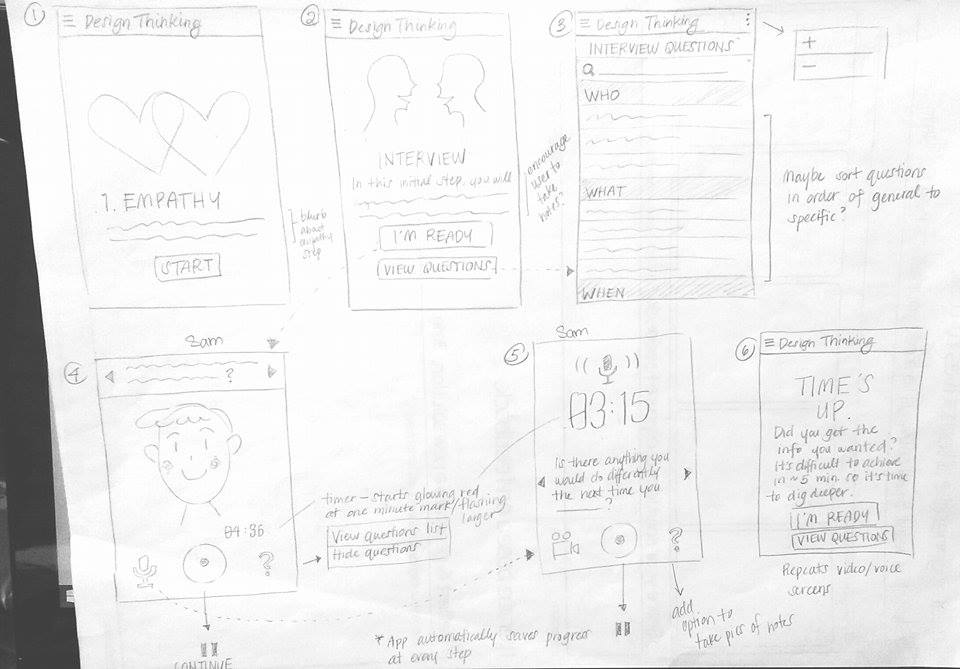 1
≡ Design Thinking
1. EMPATHY
START
blurb
about
empathy
step
2
≡ Design Thinking
INTERVIEW
In this initial step, you will
I'M READY
VIEW QUESTIONS
encourage
user to
take
notes?
3
≡ Design Thinking
INTERVIEW QUESTIONS
WHO
WHAT
WHEN
+
−
Maybe sort questions
in order of general to
specific?
4
Sam
?
04:36
?
CONTINUE
timer – starts glowing red
at one minute mark/flashing
larger
View questions list
Hide questions
* App automatically saves progress
at every step
5
Sam
03:15
Is there anything you
would do differently
the next time you
______?
?
add
option to
take pics of notes
6
≡ Design Thinking
TIME'S
UP.
Did you get the
info you wanted?
It's difficult to achieve
in ~5 min. so it's time
to dig deeper.
I'M READY
VIEW QUESTIONS
Repeats video/voice
screens